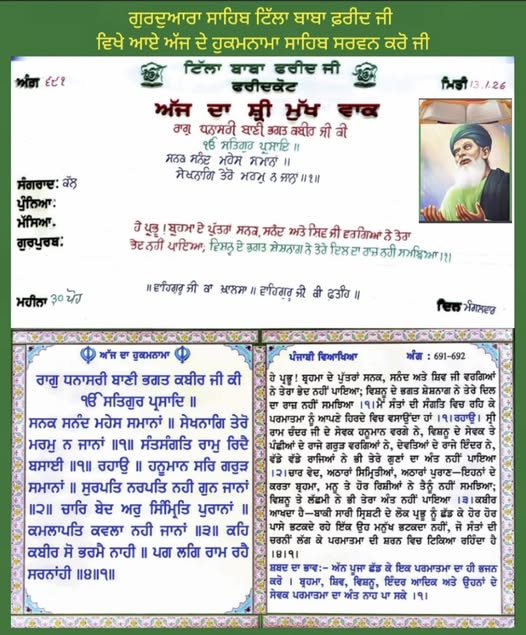 ਗੁਰਦੁਆਰਾ ਸਾਹਿਬ ਟਿੱਲਾ ਬਾਬਾ ਫ਼ਰੀਦ ਜੀ
ਵਿਖੇ ਆਏ ਅੱਜ ਦੇ ਹੁਕਮਨਾਮਾ ਸਾਹਿਬ ਸਰਵਨ ਕਰੋ ਜੀ
ਟਿੱਲਾ ਬਾਬਾ ਫਰੀਦ ਜੀ
ਫਰੀਦਕੋਟ
ਅੰਗ ੬੯੧
ਮਿਤੀ 13.1.26
ਅੱਜ ਦਾ ਸ਼੍ਰੀ ਮੁੱਖ ਵਾਕ
ਰਾਗੁ ਧਨਾਸਰੀ ਬਾਣੀ ਭਗਤ ਕਬੀਰ ਜੀ ਕੀ
ੴ ਸਤਿਗੁਰ ਪ੍ਰਸਾਦਿ ॥
ਸਨਕ ਸਨੰਦ ਮਹੇਸ ਸਮਾਨਾਂ ॥
ਸੇਖਨਾਗਿ ਤੇਰੋ ਮਰਮੁ ਨ ਜਾਨਾਂ ॥੧॥
ਸੰਗਰਾਦ: ਕੱਲ
ਪੁੰਨਿਆ:
ਮੱਸਿਆ.
ਗੁਰਪੁਰਬ:
ਹੇ ਪ੍ਰਭੂ! ਬ੍ਰਹਮਾ ਦੇ ਪੁੱਤਰਾਂ ਸਨਕ, ਸਨੰਦ ਅਤੇ ਸਿਵ ਜੀ ਵਰਗਿਆ ਨੇ ਤੇਰਾ
ਭੇਦ ਨਹੀਂ ਪਾਇਆ; ਵਿਸ਼ਨੂ ਦੇ ਭਗਤ ਸ਼ੇਸ਼ਨਾਗ ਨੇ ਤੇਰੇ ਦਿਲ ਦਾ ਰਾਜ਼ ਨਹੀਂ ਸਮਝਿਆ।੧।
॥ਵਾਹਿਗੁਰੂ ਜੀ ਕਾ ਖ਼ਾਲਸਾ॥ ਵਾਹਿਗੁਰੂ ਜੀ ਕੀ ਫ਼ਤਹਿ॥
ਮਹੀਨਾ 30 ਪੋਹ
ਦਿਨ ਮੰਗਲਵਾਰ
ਅੱਜ ਦਾ ਹੁਕਮਨਾਮਾ
ਰਾਗੁ ਧਨਾਸਰੀ ਬਾਣੀ ਭਗਤ ਕਬੀਰ ਜੀ ਕੀ
ੴ ਸਤਿਗੁਰ ਪ੍ਰਸਾਦਿ ॥
ਸਨਕ ਸਨੰਦ ਮਹੇਸ ਸਮਾਨਾਂ ॥ ਸੇਖਨਾਗਿ ਤੇਰੋ
ਮਰਮੁ ਨ ਜਾਨਾਂ ॥੧॥ ਸੰਤਸੰਗਤਿ ਰਾਮੁ ਰਿਦੈ
ਬਸਾਈ ॥੧॥ ਰਹਾਉ ॥ ਹਨੂਮਾਨ ਸਰਿ ਗਰੁੜ
ਸਮਾਨਾਂ ॥ ਸੁਰਪਤਿ ਨਰਪਤਿ ਨਹੀ ਗੁਨ ਜਾਨਾਂ
॥੨॥ ਚਾਰਿ ਬੇਦ ਅਰੁ ਸਿੰਮ੍ਰਿਤਿ ਪੁਰਾਨਾਂ ॥
ਕਮਲਾਪਤਿ ਕਵਲਾ ਨਹੀ ਜਾਨਾਂ ॥੩॥ ਕਹਿ
ਕਬੀਰ ਸੋ ਭਰਮੈ ਨਾਹੀ ॥ ਪਗ ਲਗਿ ਰਾਮ ਰਹੈ
ਸਰਨਾਂਹੀ ॥੪॥੧॥
ਪੰਜਾਬੀ ਵਿਆਖਿਆ ਅੰਗ : 691-692
ਹੇ ਪ੍ਰਭੂ! ਬ੍ਰਹਮਾ ਦੇ ਪੁੱਤਰਾਂ ਸਨਕ, ਸਨੰਦ ਅਤੇ ਸ਼ਿਵ ਜੀ ਵਰਗਿਆਂ
ਨੇ ਤੇਰਾ ਭੇਦ ਨਹੀਂ ਪਾਇਆ; ਵਿਸ਼ਨੂ ਦੇ ਭਗਤ ਸ਼ੇਸ਼ਨਾਗ ਨੇ ਤੇਰੇ ਦਿਲ
ਦਾ ਰਾਜ਼ ਨਹੀਂ ਸਮਝਿਆ ।੧।ਮੈਂ ਸੰਤਾਂ ਦੀ ਸੰਗਤਿ ਵਿਚ ਰਹਿ ਕੇ
ਪਰਮਾਤਮਾ ਨੂੰ ਆਪਣੇ ਹਿਰਦੇ ਵਿਚ ਵਸਾਉਂਦਾ ਹਾਂ ।੧।ਰਹਾਉ। ਸ੍ਰੀ
ਰਾਮ ਚੰਦਰ ਜੀ ਦੇ ਸੇਵਕ ਹਨੂਮਾਨ ਵਰਗੇ ਨੇ, ਵਿਸ਼ਨੂ ਦੇ ਸੇਵਕ ਤੇ
ਪੰਛੀਆਂ ਦੇ ਰਾਜੇ ਗਰੁੜ ਵਰਗਿਆਂ ਨੇ, ਦੇਵਤਿਆਂ ਦੇ ਰਾਜੇ ਇੰਦਰ ਨੇ,
ਵੱਡੇ ਵੱਡੇ ਰਾਜਿਆਂ ਨੇ ਭੀ ਤੇਰੇ ਗੁਣਾਂ ਦਾ ਅੰਤ ਨਹੀਂ ਪਾਇਆ
।੨।ਚਾਰ ਵੇਦ, ਅਠਾਰਾਂ ਸਿਮ੍ਰਿਤੀਆਂ, ਅਠਾਰਾਂ ਪੁਰਾਣ—ਇਹਨਾਂ ਦੇ
ਕਰਤਾ ਬ੍ਰਹਮਾ, ਮਨੂ ਤੇ ਹੋਰ ਰਿਸ਼ੀਆਂ ਨੇ ਤੈਨੂੰ ਨਹੀਂ ਸਮਝਿਆ;
ਵਿਸ਼ਨੂ ਤੇ ਲੱਛਮੀ ਨੇ ਭੀ ਤੇਰਾ ਅੰਤ ਨਹੀਂ ਪਾਇਆ ।੩।ਕਬੀਰ
ਆਖਦਾ ਹੈ—ਬਾਕੀ ਸਾਰੀ ਸ੍ਰਿਸ਼ਟੀ ਦੇ ਲੋਕ ਪ੍ਰਭੂ ਨੂੰ ਛੱਡ ਕੇ ਹੋਰ ਹੋਰ
ਪਾਸੇ ਭਟਕਦੇ ਰਹੇ ਇੱਕ ਉਹ ਮਨੁੱਖ ਭਟਕਦਾ ਨਹੀਂ, ਜੋ ਸੰਤਾਂ ਦੀ
ਚਰਨੀਂ ਲੱਗ ਕੇ ਪਰਮਾਤਮਾ ਦੀ ਸ਼ਰਨ ਵਿਚ ਟਿਕਿਆ ਰਹਿੰਦਾ ਹੈ
।੪।੧।
ਸ਼ਬਦ ਦਾ ਭਾਵ:- ਅੱਨ ਪੂਜਾ ਛੱਡ ਕੇ ਇਕ ਪਰਮਾਤਮਾ ਦਾ ਹੀ ਭਜਨ
ਕਰੋ । ਬ੍ਰਹਮਾ, ਸ਼ਿਵ, ਵਿਸ਼ਨੂ, ਇੰਦਰ ਆਦਿਕ ਅਤੇ ਉਹਨਾਂ ਦੇ
ਸੇਵਕ ਪਰਮਾਤਮਾ ਦਾ ਅੰਤ ਨਾਹ ਪਾ ਸਕੇ ।੧।